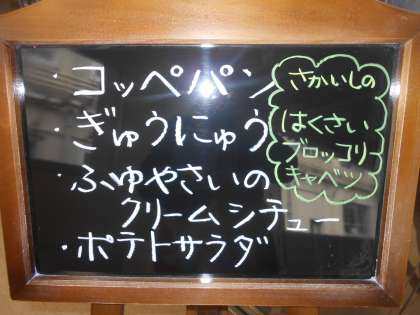 ・コッペパン
・ぎゅうにゅう
・ふゆやさいの
クリームシチュー
・ポテトサラダ
さかいしの
はくさい
ブロッコリ
キャベツ